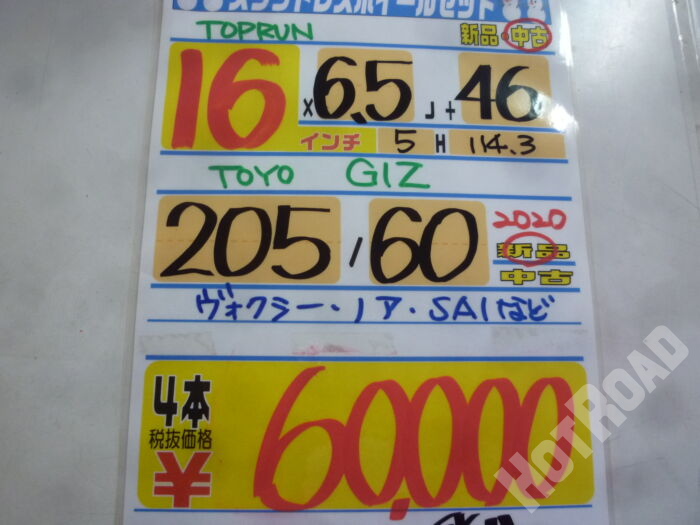 スタッドレスホイールセット
TOPRUN 新品・中古
16 x 6.5 J + 46
インチ 5 H 114.3
TOYO GIZ
205 / 60 2020
新品
中古
ヴォクシー・ノア・SAIなど
4本
税抜価格
¥60,000
HOTROAD